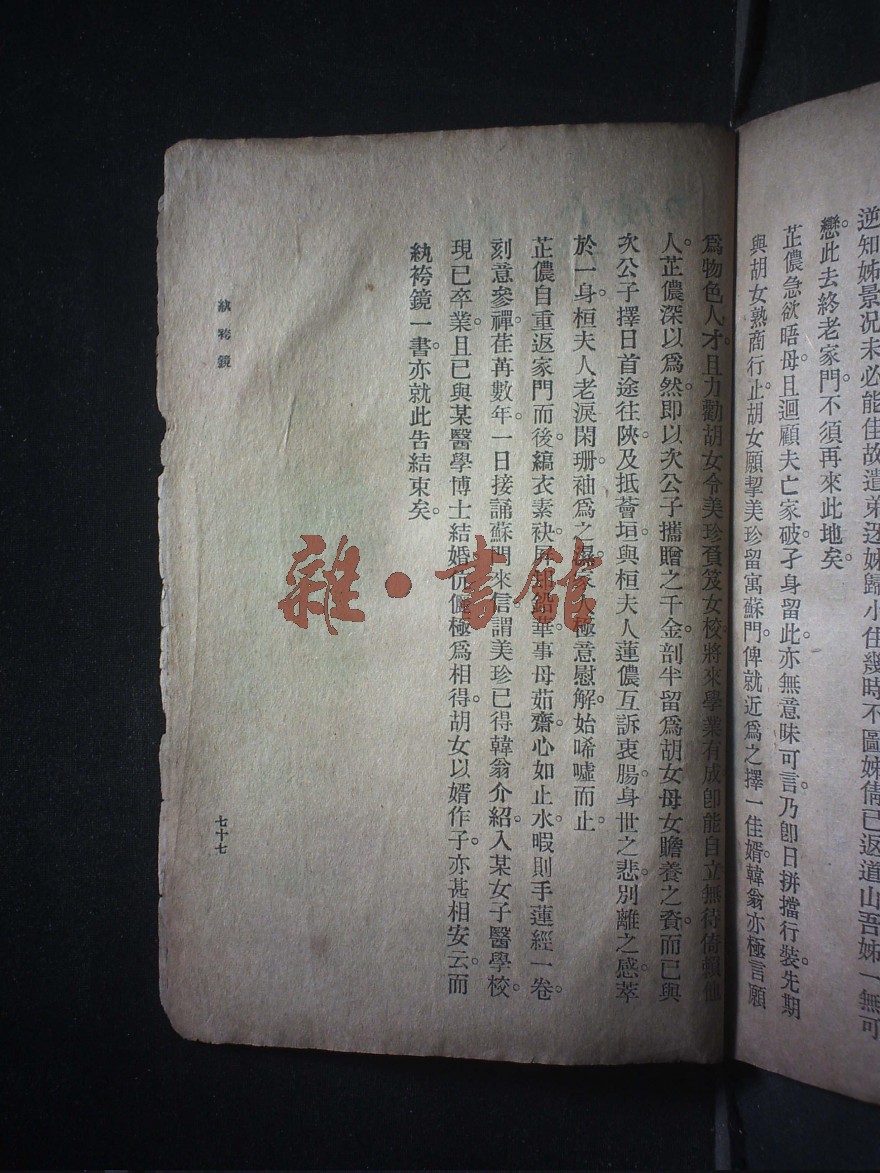 逆知姊景况未必能佳故遣弟迓姊歸小住幾時不圖姊倩已返道山吾姊一無可
戀此去終老家門不須再來此地矣。
芷儂急欲晤母且迴顧夫亡家破。孑身留此亦無意味可言。乃卽日拼擋行裝先期
與胡女熟商行止。胡女願挈美珍留寓蘇門。俾就近爲之擇一佳婿。韓翁亦極言願
爲物色人才。且力勸胡女令美珍負笈女校。將來學業有成卽能自立無待倚賴他
人。芷儂深以爲然。即以次公子攜贈之千金剖半留爲胡女母女贍養之資。而已與
次公子擇日首途往陝。及抵薈垣。與桓夫人蓮儂互訴衷腸。身世之悲。別離之感。萃
於一身。桓夫人老淚闌珊。袖爲之濕。家人極意慰解。始唏噓而止。
芷儂自重返家門而後。縞衣素袂。屏却鉛華。事母茹齋。心如止水。暇則手蓮經一卷。
刻意參禪。荏苒數年。一日接誦蘇門來信。謂美珍已得韓翁介紹。入某女子醫學校。
現已卒業。且已與某醫學博士結婚。伉儷極爲相得。胡女以婿作子。亦甚相安云。而
紈袴鏡一書亦就此告結束矣。
紈袴鏡
七十七
雜·書館